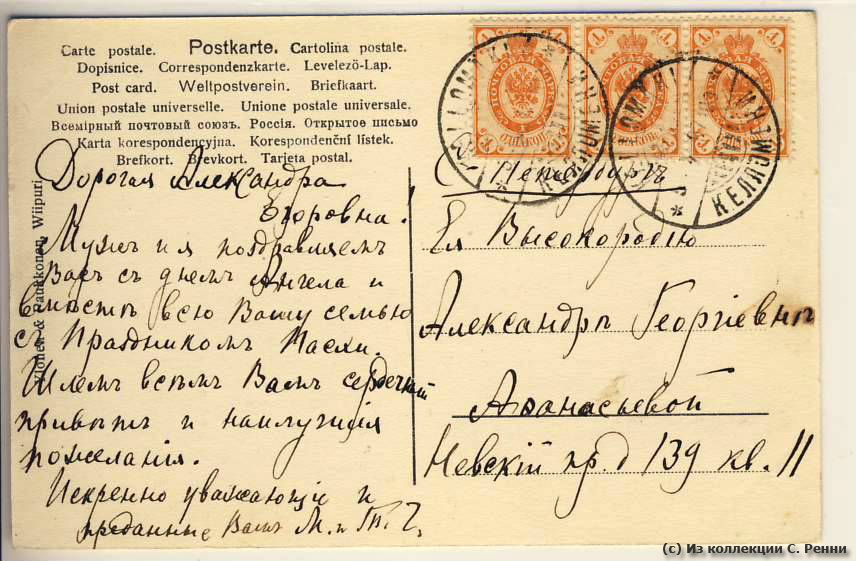 Carte postale. Postkarte. Cartolina postale.
Dopisnice. Correspondenzkarte. Levelezö-Lap.
Post card. Weltpostverein. Briefkaart.
Union postale universelle. Unione postale universale.
Всемірный почтовый союзъ. Россія. Открытое письмо
Karta korespondencyjna. Korespondenční lístek.
Brefkort. Brevkort. Tarjeta postal.
Дорогая Александра
Егоровна!
Мужъ и я поздравляемъ
Васъ съ днемъ Ангела и
вмѣстѣ всю Вашу семью
съ Праздникомъ Пасхи.
Шлемъ всѣмъ Вамъ сердечный
привѣтъ и наилучшія
пожеланія.
Искренно уважающіе и
преданные Вамъ М. и
& Paukkonen, Wiipuri
КЕЛЛОМЯКИ
КЕЛЛОМЯКИ
С. Петербургъ
Ея Высокородію
Александрѣ Георгіевнѣ
Афанасьевой
Невскій пр. д 139 кв. 11
(c) Из коллекции С. Ренни